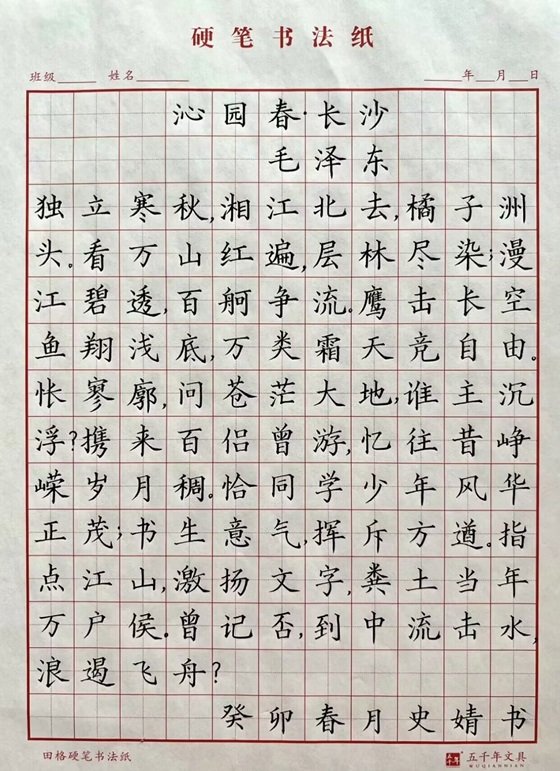 硬笔书法纸
班级 姓名 年 月 日
沁园春·长沙
毛泽东
独立寒秋,湘江北去,橘子洲
头。看万山红遍,层林尽染;漫
江碧透,百舸争流。鹰击长空
鱼翔浅底,万类霜天竞自由。
怅寥廓,问苍茫大地,谁主沉
浮?携来百侣曾游,忆往昔峥
嵘岁月稠。恰同学少年风华
正茂;书生意气,挥斥方遒。指
点江山,激扬文字,粪土当年
万户侯。曾记否,到中流击水,
浪遏飞舟?
癸卯春月史婧书
田格硬笔书法纸 五千年文具
WUQIANNIAN